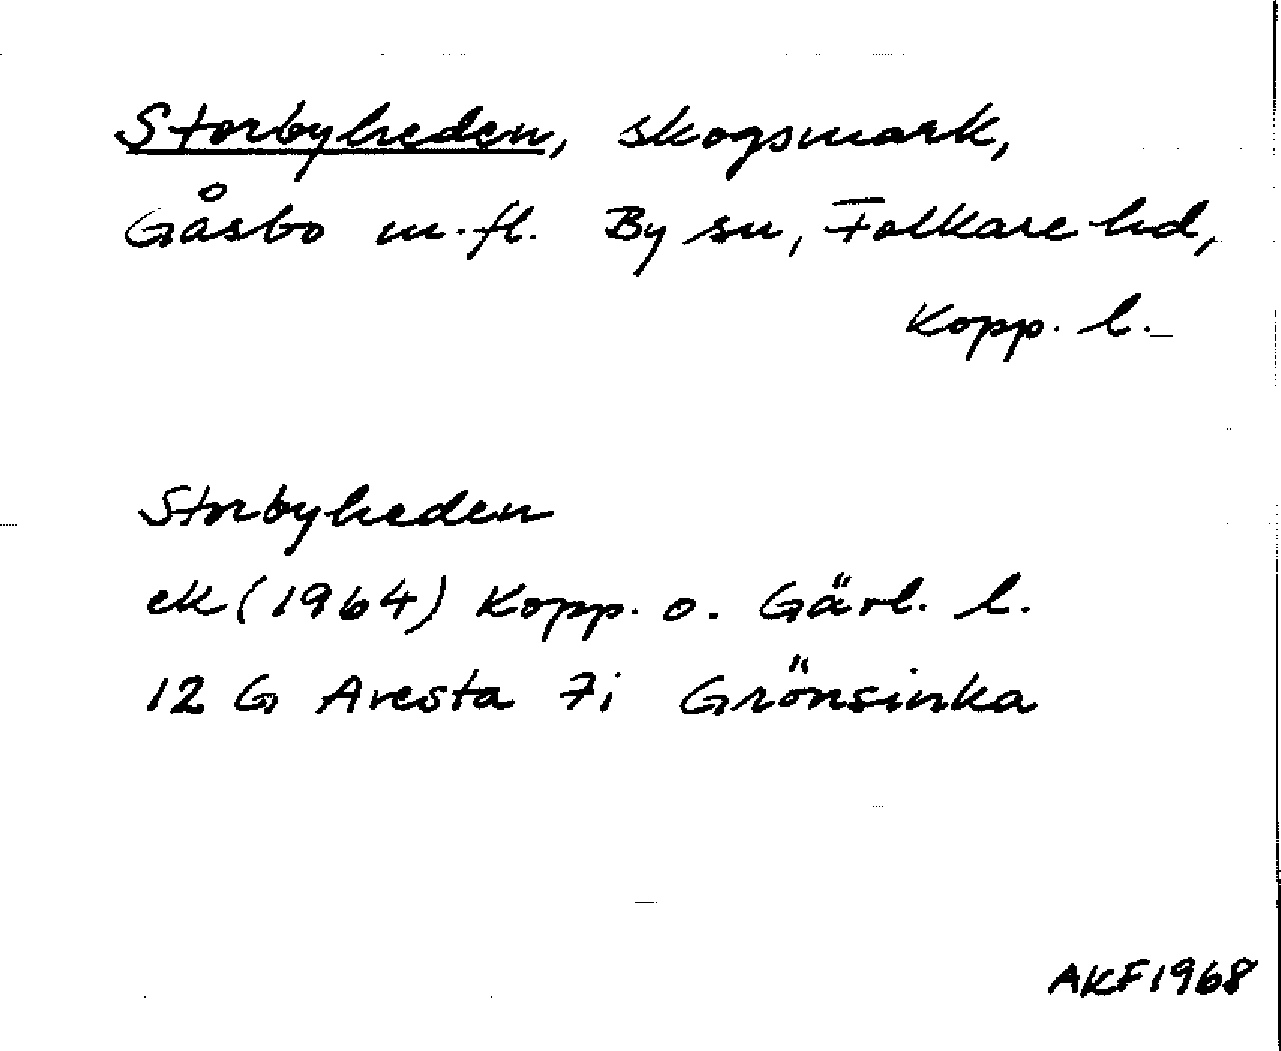 Storbyheden, skogsmark,
Gåsbo m.fl. By sn, Folkare hd,
Kopp. l.
Storbyheden
ek (1964) Kopp. o. Gävl. l.
12 G Avesta 7i Grönsinka
AKF1968